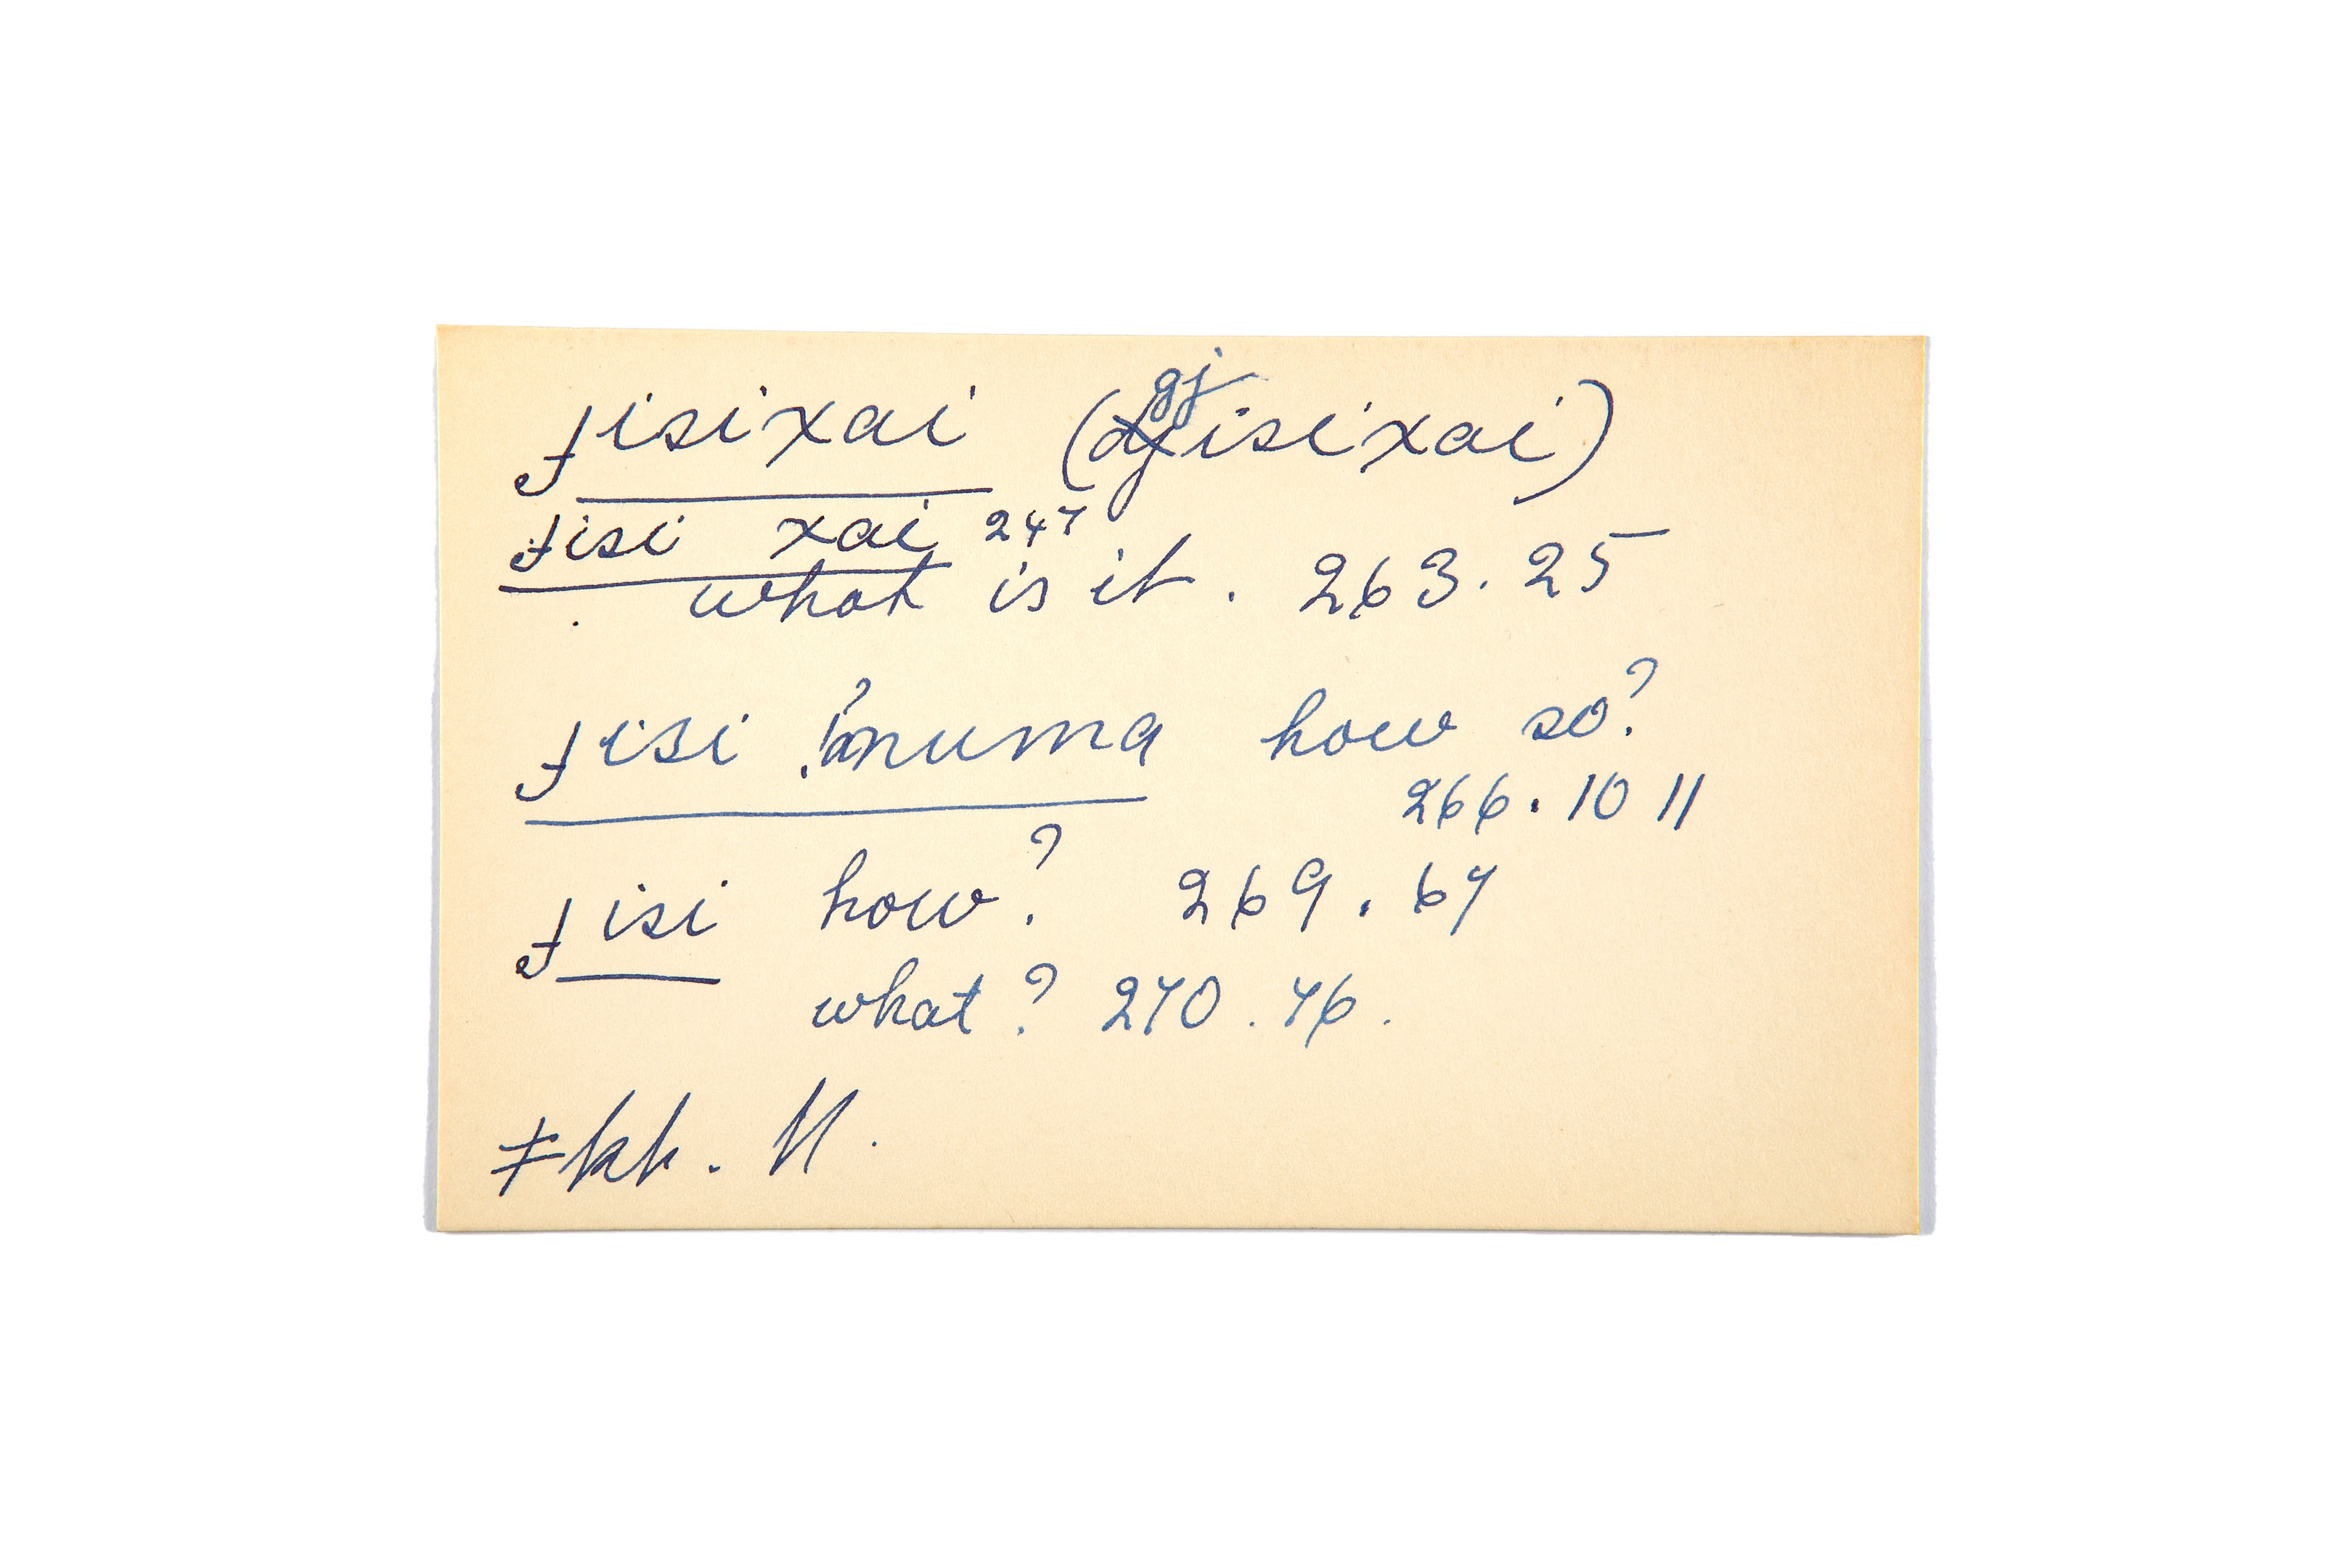 ɟisixai (gjisixai)
ɟisi xai 247
what is it. 263.25
ɟisi ʔnuma how so?
266.10 11
ɟisi how? 269.67
what? 270.76.
≠kh. N.